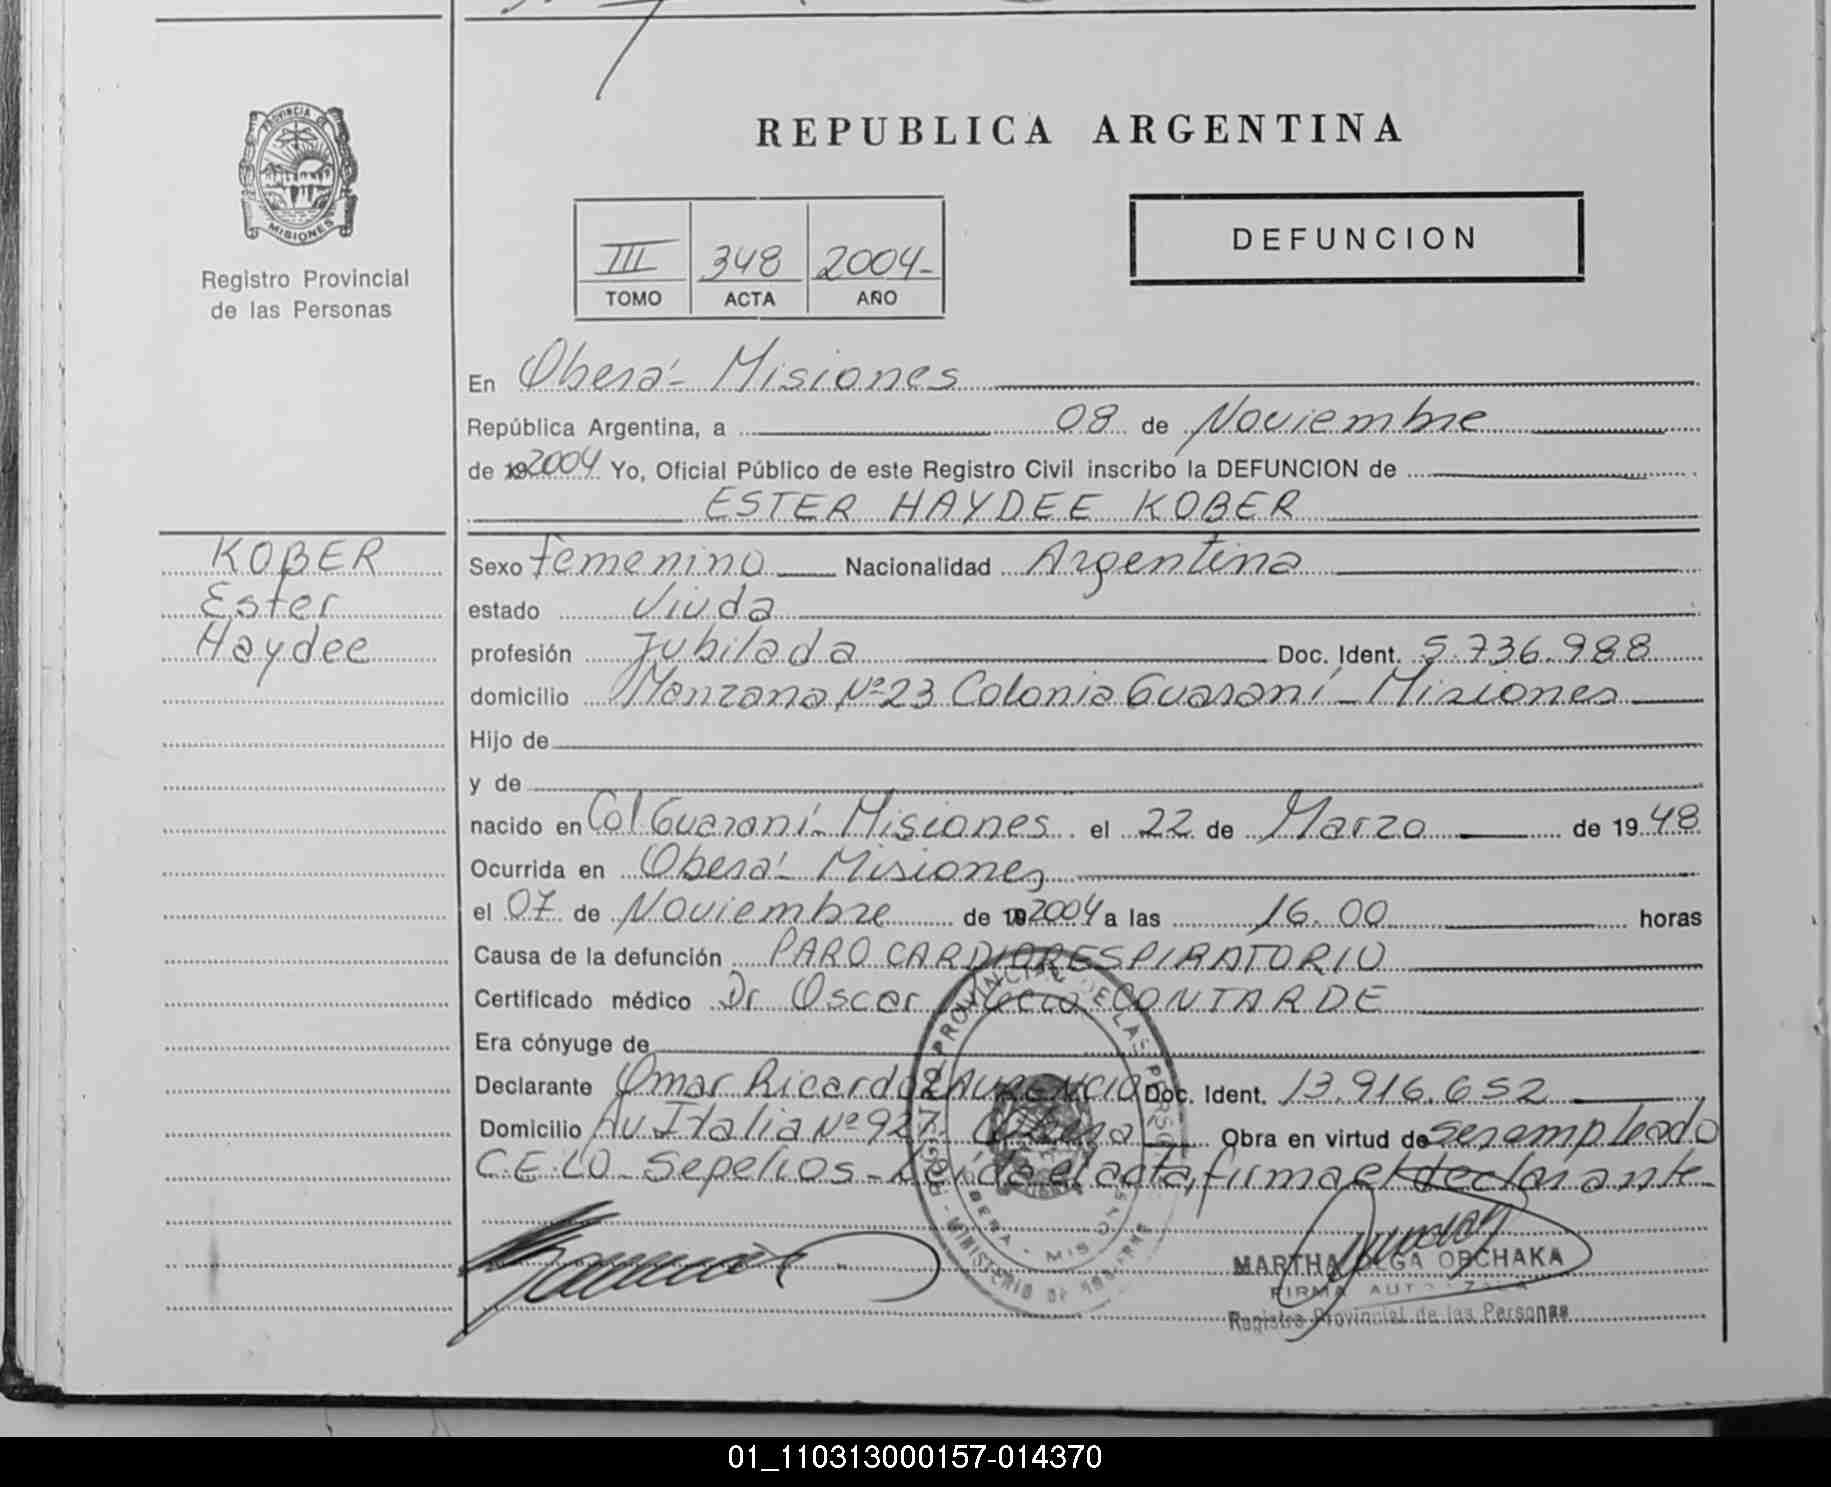 REPUBLICA ARGENTINA
PROVINCIA DE MISIONES
Registro Provincial
de las Personas
III 348 2004-
TOMO ACTA AÑO
DEFUNCION
En Oberá - Misiones
República Argentina, a 08 de Noviembre
de 192004 Yo, Oficial Público de este Registro Civil inscribo la DEFUNCION de
ESTER HAYDEE KOBER
KOBER
Ester
Haydee
Sexo femenino Nacionalidad Argentina
estado Viuda
profesión Jubilada Doc. Ident. 5.736.988
domicilio Manzana Nº 23 Colonia Guaraní - Misiones
Hijo de
y de
nacido en Col Guaraní - Misiones el 22 de Marzo de 1948
Ocurrida en Oberá - Misiones
el 07 de Noviembre de 2004 a las 16.00 horas
Causa de la defunción PARO CARDIORESPIRATORIO
Certificado médico Dr Oscar CONTARDE
Era cónyuge de
Declarante Omar Ricardo Doc. Ident. 13.916.652
Domicilio Av Italia Nº 927 - Oberá Obra en virtud de ser empleado
C.E.L.O - Sepelios - Leída el acta, firma el declarante -
MARTHA OLGA OBCHAKA
FIRMA AUTORIZADA
Registro Provincial de las Personas
01_110313000157-014370